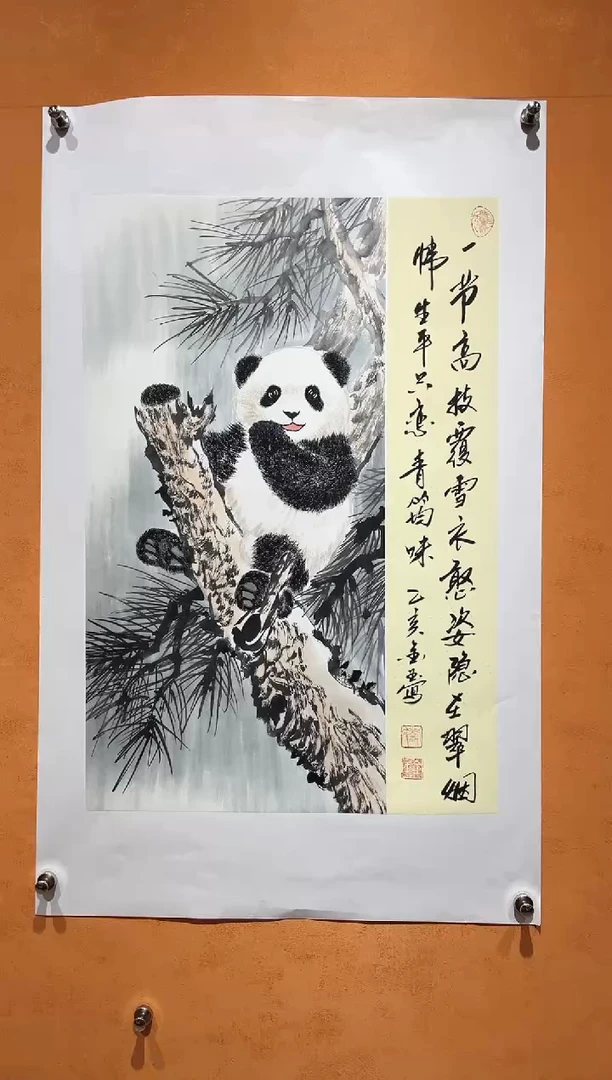 一节高枝覆雪衣憨姿隐在翠烟
帏生平只恋青笋味 乙亥金